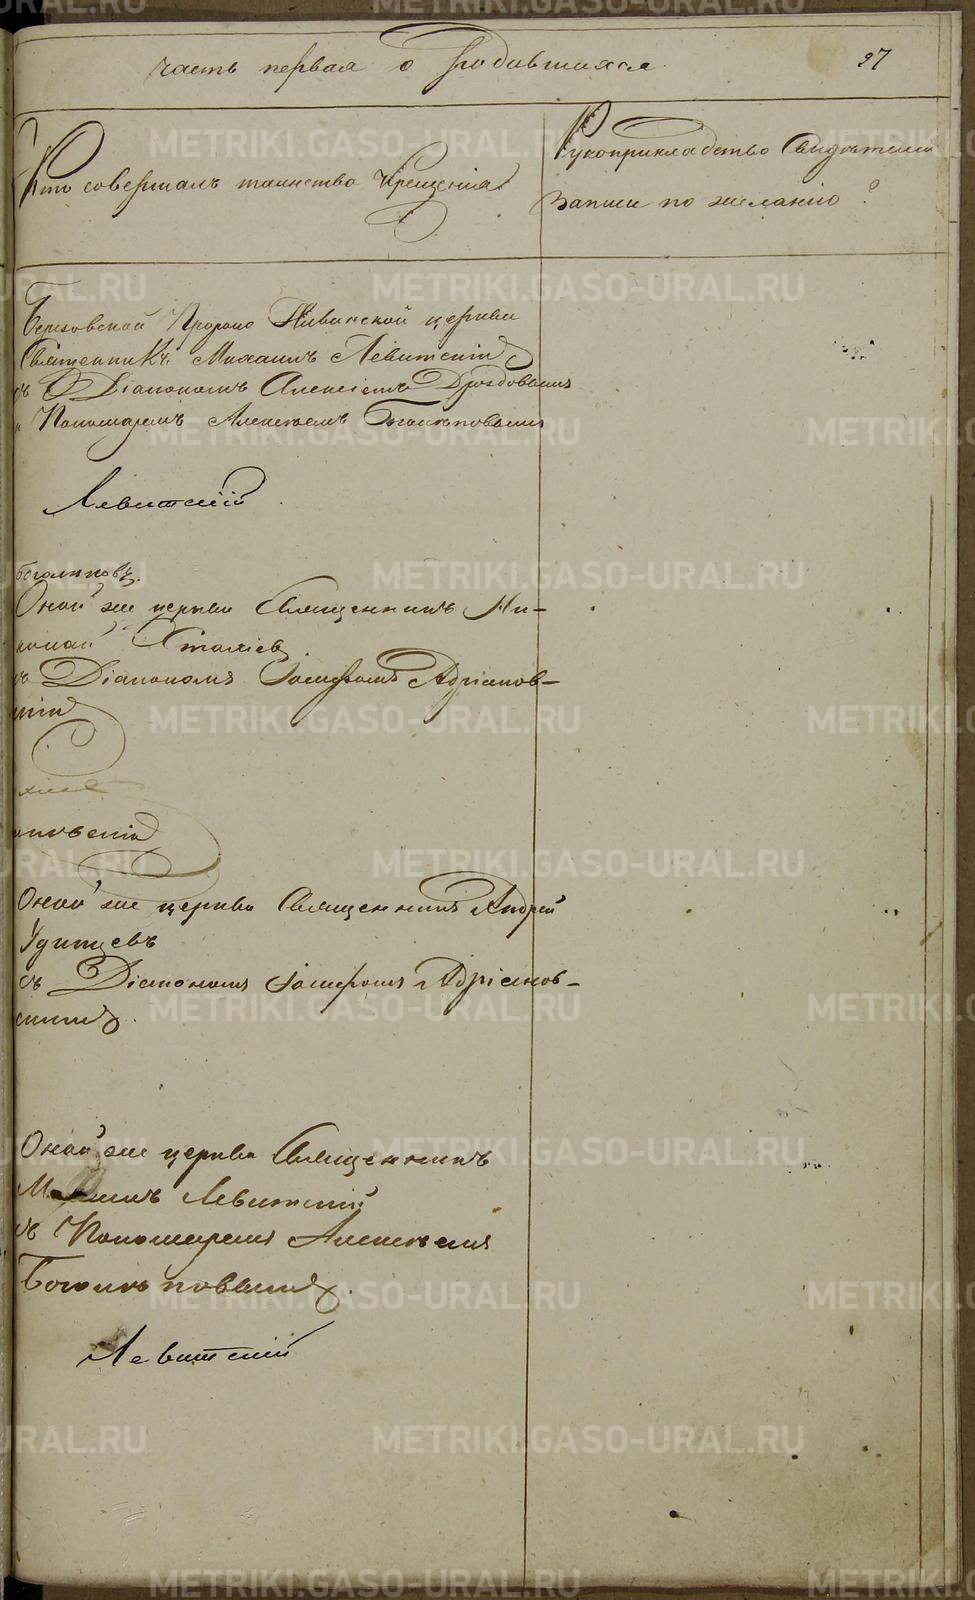 часть первая о родившихся.
27
Кто совершалъ таинство крещенія
Рукоприкладство свидѣтелей
записи по желанію?
Березовской Пророко Ильинской церкви
Священникъ Михаилъ Левитскій
съ Діакономъ Алексіемъ Дроздовымъ
и Пономаремъ Алексѣемъ Боголѣповымъ
Левитскій
Боголѣповъ.
Оной же церкви Священникъ Ни-
колай
съ Діакономъ Іосифомъ Адріанов-
Оной же церкви Священникъ Андрей
Удинцевъ
съ Діакономъ Іосифомъ Адріанов-
скимъ.
Оной же церкви Священникъ
Михаилъ Левитскій
съ Пономаремъ Алексѣемъ
Боголѣповымъ.
Левитскій
METRIKI.GASO-URAL.RU